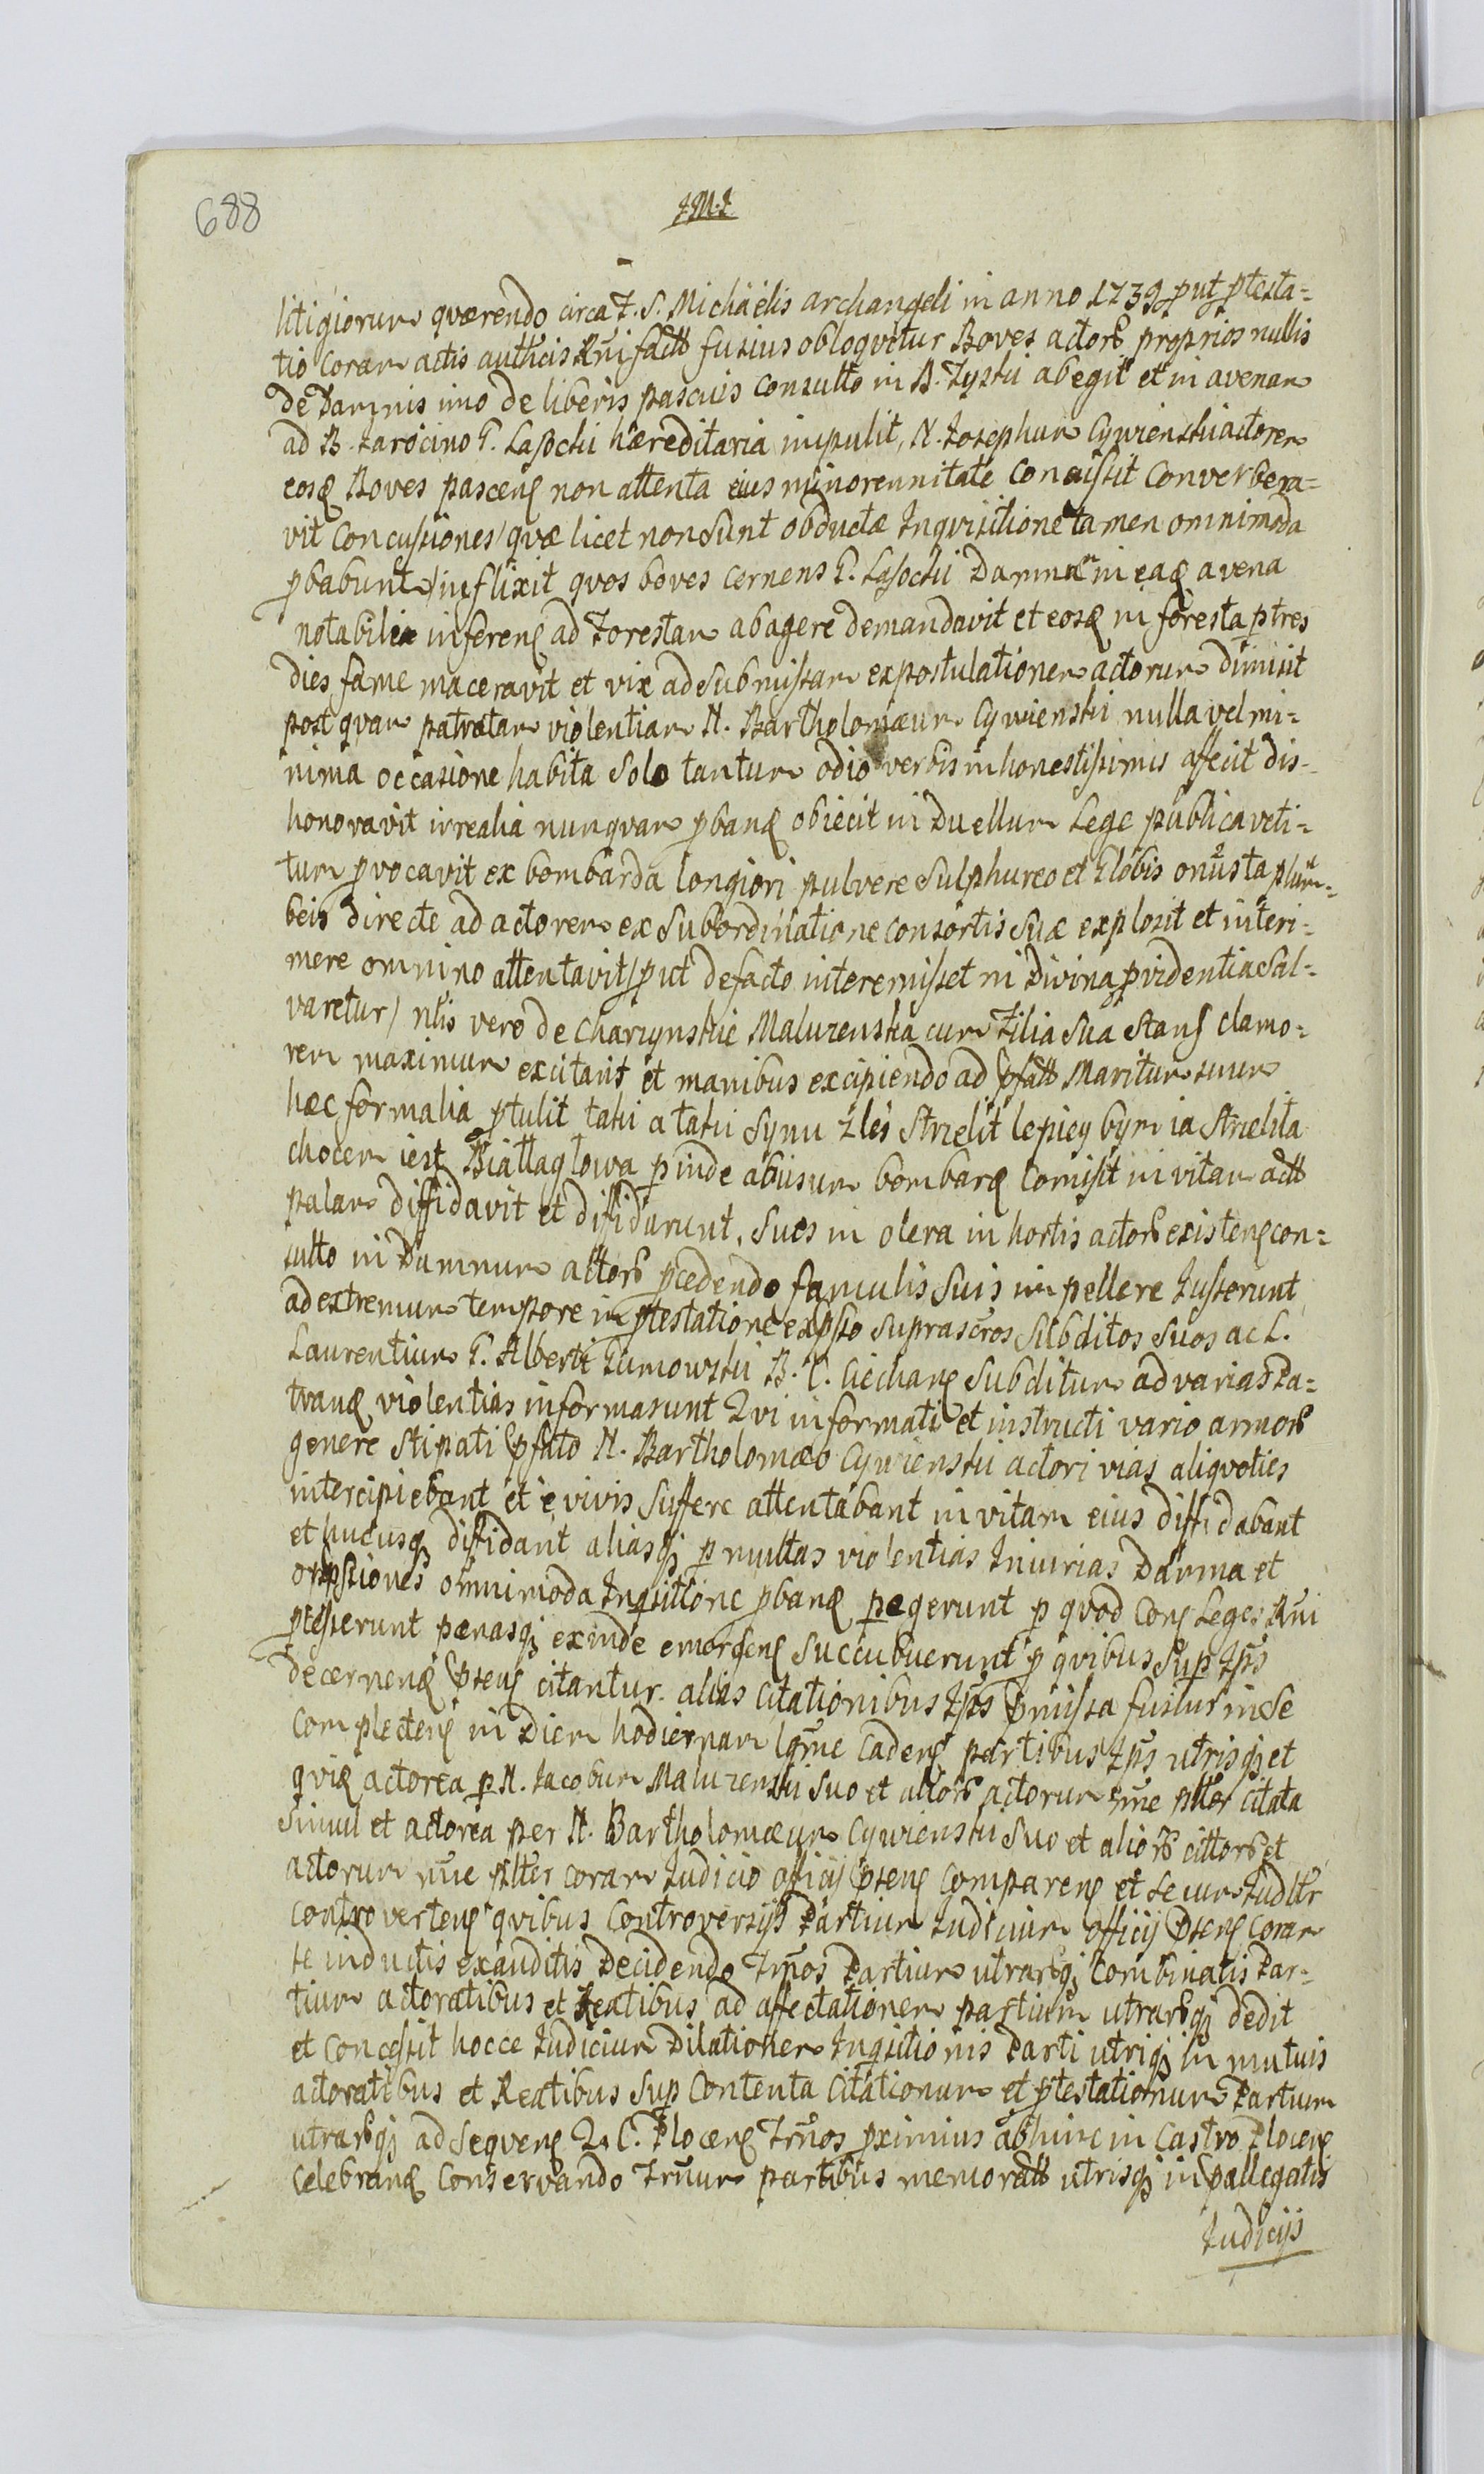 688
J.M.J
litigiorum quærendo circa F. S. Michaëlis archangeli in anno 1739 put ptesta=
tio coram actis authcis Rni factt fusius obloqvitur Boves actorȝ proprios nullis
de Damnis imo de liberis pascuis consulto in B. Zyski abegit et in avenam
ad B. Jarocino G. Lasocki hæreditaria impulit, N. Josephum Cywienski actorem
eosq Boves pasceng non attenta eius minorennitate concussit converbera=
vit concussiones/ quæ licet non sunt obductæ Inqvisitione tamen omnimoda
pbabunt/ inflixit qvos boves cernens G. Lasocki Damna in eaq avena
notabilia inferenq ad Forestam abagere demandavit et eosq in foresta p tres
dies fame maceravit et vix ad submissam expostulationem actorum dimisit
post qvam patratam violentiam N. Bartholomæum Cywienski nulla vel mi=
nima occasione habita solo tantum odio verbis inhonestissimis affecit dis=
honoravit irrealia nunqvam pbanq obiecit in Duellum Lege publica veti=
tum pvocavit ex bombarda longiori pulvere sulphureo et Globis onusta plum=
beis directe ad actorem ex subordinatione consortis suæ explosit et interi=
mere omnino attentavit/ put de facto interemisset ni Divina pvidentia sal=
varetur/ nlis vero de Charzynskie Maluzenska cum Filia sua stans clamo=
rem maximum excitarit et manibus excipiendo ad pfatt Maritum suum
hæc formalia ptulit taki a taki synu zleś strzelił lepiey bym ia strzeliła
chociem iest Białlagłowa pinde abusum bombarq comisit in vitam actt
palam diffidavit et diffidarunt, Sues in olera in hortis actorȝ existenq con=
sulto in Damnum actorȝ pcedendo famulis suis impellere Jusserunt
ad extremum tempore in ptestatione expsso suprascros subditos suos ac L.
Laurentium G. Alberti Gumowski B. C. Ciechanq subditum ad varias Pa=
tranq violentias informarunt Qvi informati et instructi vario armorȝ
genere stipati pfato N. Bartholomæo Cywienski actori vias aliqvoties
intercipiebant et e vivis suffere attentabant in vitam eius diffidabant
et hucusq diffidant aliasq p multas violentias Iniurias Damna et
oppssiones omnimoda Inqsitione pbanq pegerunt p qvod Conq Leges Rni
ptesserunt pænasq exinde emergenq succubuerunt p qvibus sup Ips
decernenq psenq citantur alias citationibus Ips pmissa fusius in se
complectenq in Diem hodiernam lqme cadenq partibus Ips utrisq et
qviq actorea p N. Jacobum Maluzenski suo et aliorȝ actorum nne pltter citata
simul et actorea per N. Bartholomæum Cywienski suo et aliorȝ cittorȝ et
actorum nne pltter coram Judicio officij psenq comparenq et secum Judltr
controvertenq qvibus controversijs Partium Judicium officij psenq coram
se inductis exauditis Decidendo Trnos Partium utrarȝq combinatis Par=
tium actoratibus et Reatibus ad affectationem partium utrarȝq dedit
et concessit hocce Judicium Dilationem Inqsitionis Parti utriq in mutuis
actoratibus et Reatibus sup contenta citationum et ptestationum Partium
utrarȝq ad seqvenq Q. C. Plocenq Trnos pximius abhinc in Castro Plocenq
celebranq conservando Trnum partibus memoratt utrisq in pallegatis
Judicijs